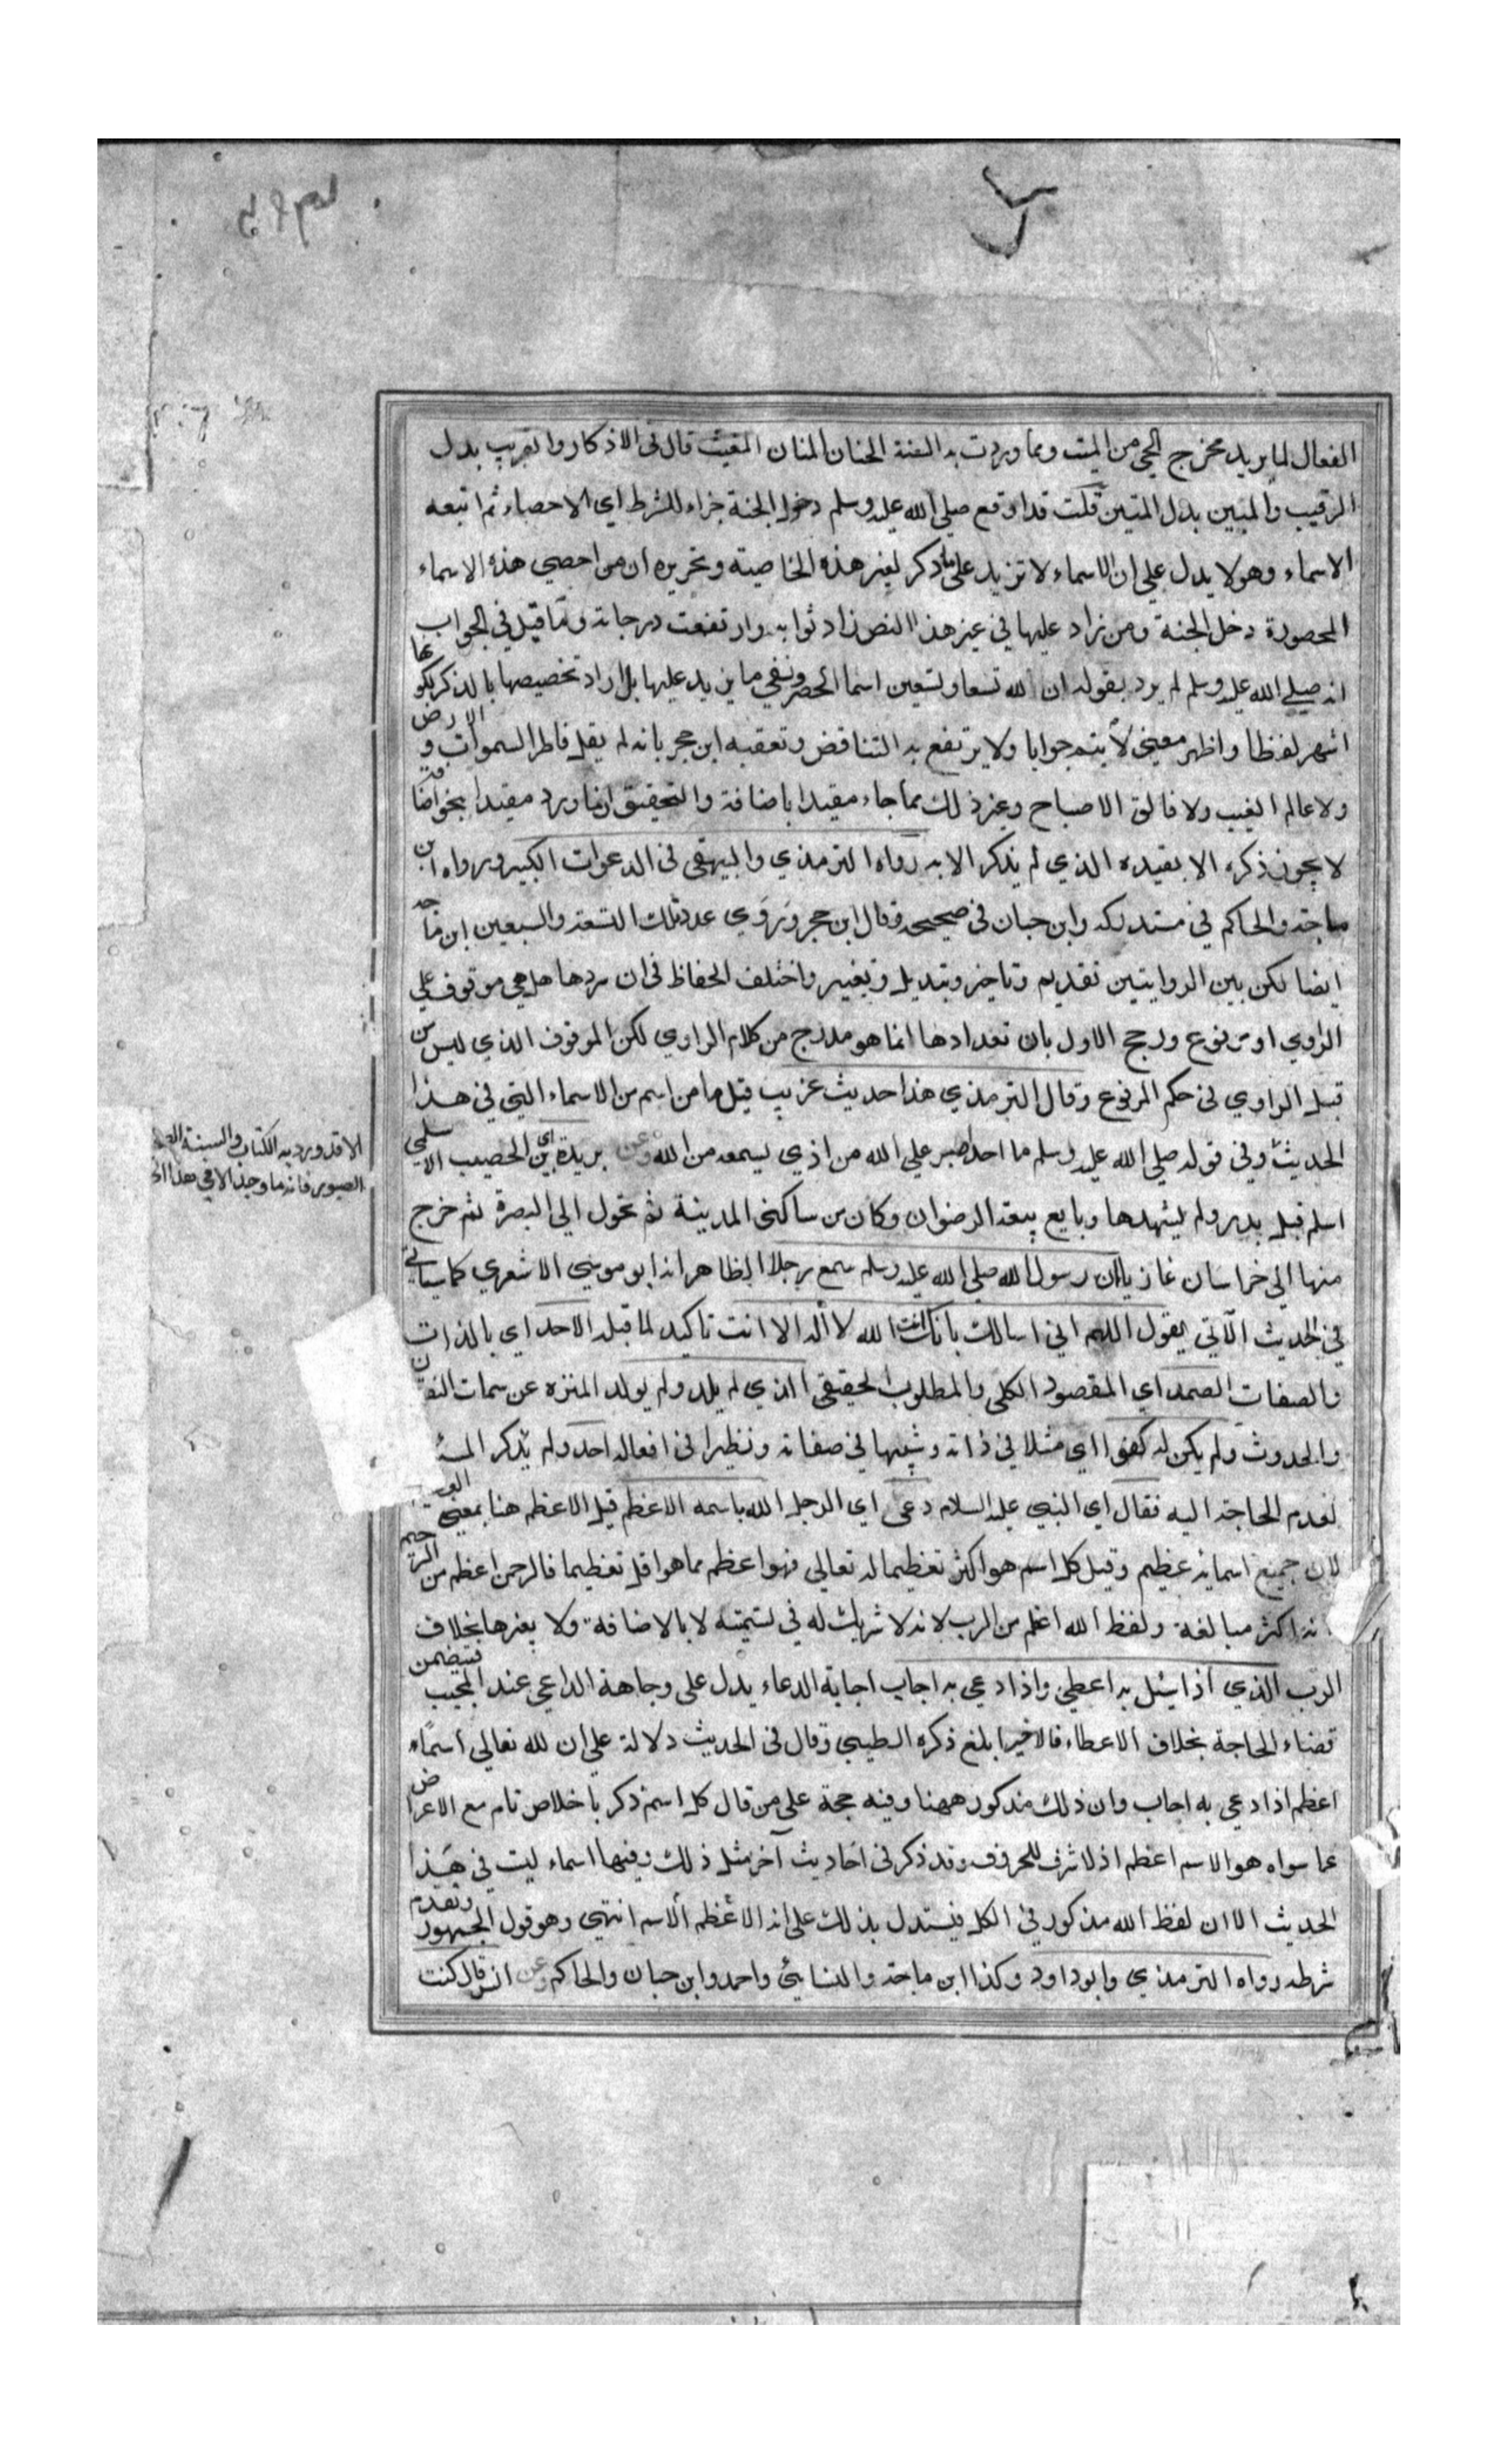 الفعال لما يريد مخرج الحي من الميت ومما وردت به السنة الحنان المنان المغيث قال في الاذكار والقريب بدل
الرقيب والمبين بدل المتين قلت قد اوقع صلي الله عليه وسلم دخول الجنة جزاء للشرط اي الاحصاء ثم اتبعه
الاسماء وهو لا يدل علي ان الاسماء لا تزيد علي ما ذكر لغير هذه الخاصية وتحريره ان من احصي هذه الاسماء
المحصورة دخل الجنة ومن زاد عليها في غير هذا النص زاد ثوابه وارتفعت درجاته وما قيل في الجواب
انه صلي الله عليه وسلم لم يرد بقوله ان لله تسعا وتسعين اسما الحصر ونفي ما يزيد عليها بل اراد تخصيصها بالذكر لكونها
اشهر لفظا واظهر معني لا يتم جوابا ولا يرتفع به التناقض وتعقبه ابن حجر بانه لم يقل فاطر السموات والارض
ولا عالم الغيب ولا فالق الاصباح وغير ذلك مما جاء مقيدا باضافة والتحقيق ان ما ورد مقيدا بنحو اضافة
لا يجوز ذكره الا بقيده الذي لم يذكر الا به رواه الترمذي والبيهقي في الدعوات الكبير ورواه ابن
ماجة والحاكم في مستدركه وابن حبان في صحيحه وقال ابن حجر وروي عدد تلك التسعة والسبعين ابن ماجه
ايضا لكن بين الروايتين تقديم وتاخير وتبديل وتغيير واختلف الحفاظ في ان سردها هل هي موقوف علي
الراوي او مرفوع ورجح الاول بان تعدادها انما هو مدرج من كلام الراوي لكن الموقوف الذي ليس من
قبل الراوي في حكم المرفوع وقال الترمذي هذا حديث غريب قيل ما من اسم من الاسماء التي في هذا
الاقد ورد به الكتاب والسنة
الصبور فانه ما وجد الا في هذا
الحديث وفي قوله صلي الله عليه وسلم ما احد اصبر علي الله من اذي يسمعه من الله وعن بريدة اي بن الحصيب الاسلمي
اسلم قبل بدر ولم يشهدها وبايع بيعة الرضوان وكان من ساكني المدينة ثم تحول الي البصرة ثم خرج
منها الي خراسان غازيا ان رسول الله صلي الله عليه وسلم سمع رجلا الظاهر انه ابو موسي الاشعري كما سياتي
في الحديث الآتي يقول اللهم اني اسالك بانك انت الله لا اله الا انت تاكيد لما قبله الاحد اي بالذات
والصفات الصمد اي المقصود الكلي والمطلوب الحقيقي الذي لم يلد ولم يولد المنزه عن سمات
والحدوث ولم يكن له كفوا اي مثلا في ذاته وشبيها في صفاته ونظيرا في افعاله احد ولم يذكر
لعدم الحاجة اليه فقال اي النبي عليه السلام دعي اي الرجل الله باسمه الاعظم قيل الاعظم هنا بمعني
لان جميع اسمائه عظيم وقيل كل اسم هو اكثر تعظيما له تعالي فهو اعظم مما هو اقل تعظيما فالرحمن اعظم من الرحيم
اكثر مبالغة ولفظ الله اعظم من الرب لانه لا شريك له في تسميته لا بالاضافة ولا بغيرها بخلاف
الرب الذي اذا سئل به اعطي واذا دعي به اجاب اجابة الدعاء يدل علي وجاهة الداعي عند المجيب فيتضمن
قضاء الحاجة بخلاف الاعطاء فالاخير ابلغ ذكره الطيبي وقال في الحديث دلالة علي ان لله تعالي اسماء
اعظم اذا دعي به اجاب وان ذلك مذكور ههنا وفيه حجة علي من قال كل اسم ذكر باخلاص تام مع الاعراض
عما سواه هو الاسم اعظم اذ لا شرف للحروف وقد ذكر في احاديث آخر مثل ذلك وفيها اسماء ليت في هذا
الحديث الا ان لفظ الله مذكور في الكل فيستدل بذلك علي انه الاعظم الاسم انتهي وهو قول الجمهور وتقدم
شرطه رواه الترمذي وابو داود وكذا ابن ماجة والنسائي واحمد وابن حبان والحاكم وعن انس قال كنت